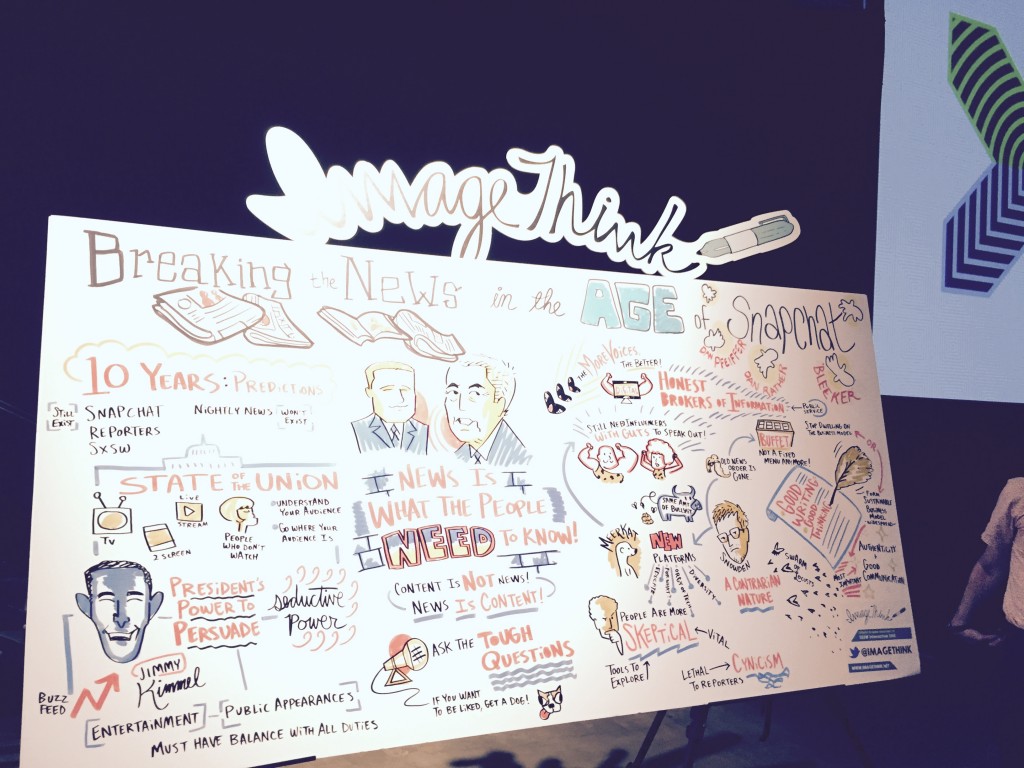 ImageThink
Breaking the News in the AGE of Snapchat
10 YEARS: PREDICTIONS
STILL EXIST
SNAPCHAT
REPORTERS
SXSW
NIGHTLY NEWS
WON'T EXIST
STATE OF THE UNION
TV
2 SCREEN
LIVE
STREAM
PEOPLE
WHO DON'T
WATCH
UNDERSTAND
YOUR AUDIENCE
GO WHERE YOUR
AUDIENCE IS
PRESIDENT'S
POWER TO
PERSUADE
seductive
Power
BUZZ
FEED
JIMMY
Kimmel
ENTERTAINMENT
PUBLIC APPEARANCES
MUST HAVE BALANCE WITH ALL DUTIES
NEWS IS
WHAT THE PEOPLE
NEED TO KNOW!
CONTENT IS NOT NEWS!
NEWS IS CONTENT!
ASK THE TOUGH
QUESTIONS
IF YOU WANT
TO BE LIKED, GET A DOG!
THE MORE VOICES,
THE BETTER!
DAN PFEIFFER
DAN RATHER
BLEEKER
HONEST
BROKERS OF INFORMATION
PUBLIC
SERVICE
STILL NEED INFLUENCERS
WITH GUTS TO SPEAK OUT!
OLD NEWS
ORDER IS
GONE
BUFFET
NOT A FIXED
MENU ANYMORE!
STOP DWELLING ON
THE BUSINESS MODEL
OR
FORM
SUSTAINABLE
BUSINESS
MODEL
SAME AMT
OF BULLSH
NEW
PLATFORMS
DIVERSITY
SNOWDEN
A CONTRARIAN
NATURE
GOOD
WRITING
GOOD
THINKING
SWARM OR
LOCUSTS
MOST
IMPORTANT
AUTHENTICITY
&
GOOD
COMMUNICATION
PEOPLE ARE MORE
SKEPTICAL
VITAL
TOOLS TO
EXPLORE
LETHAL
TO REPORTERS
CYNICISM
ImageThink
@IMAGETHINK
WWW.IMAGETHINK.NET